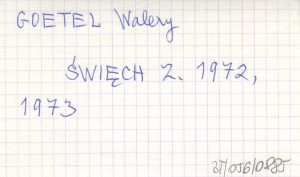 GOETEL Walery
ŚWIĘCH Z. 1972,
1973
BT/056/0885